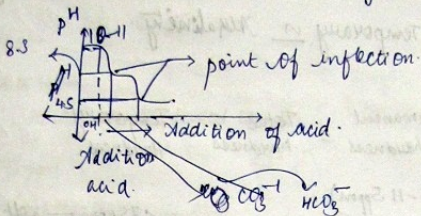 pH
10-11
8.3
point of inflection.
pH
4.5
OH⁻
Addition of acid.
Addition
acid.
CO₃⁻¹
HCO₃⁻